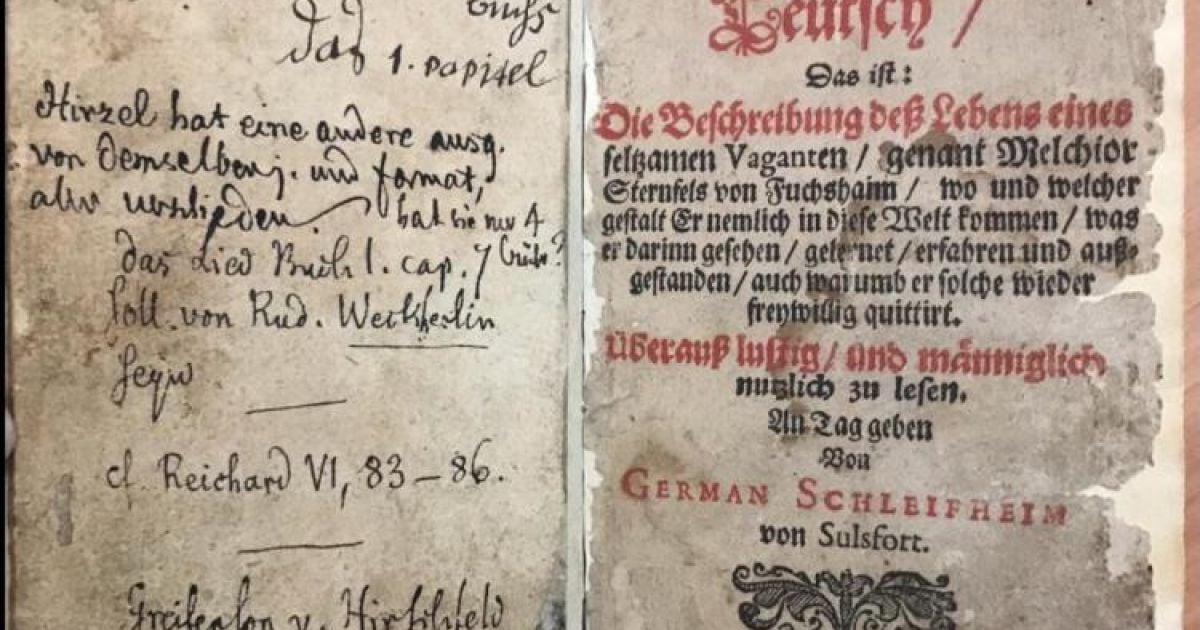 Buchs
Das 1. Capitel
Hirzel hat eine andere ausg.
von demselben j. und format,
aber
hat sie nur 4
das Lied Buch 1. cap. 7
soll von Rud. Weckherlin
seyn
cf. Reichard VI, 83–86.
v. Hirschfeld
Teutsch /
Das ist:
Die Beschreibung deß Lebens eines
seltzamen Vaganten / genant Melchior
Sternfels von Fuchshaim / wo und welcher
gestalt Er nemlich in diese Welt kommen / was
er darinn gesehen / gelernet / erfahren und auß-
gestanden / auch warumb er solche wieder
freywillig quittirt.
Überauß lustig / und männiglich
nutzlich zu lesen.
An Tag geben
Von
GERMAN SCHLEIFHEIM
von Sulsfort.